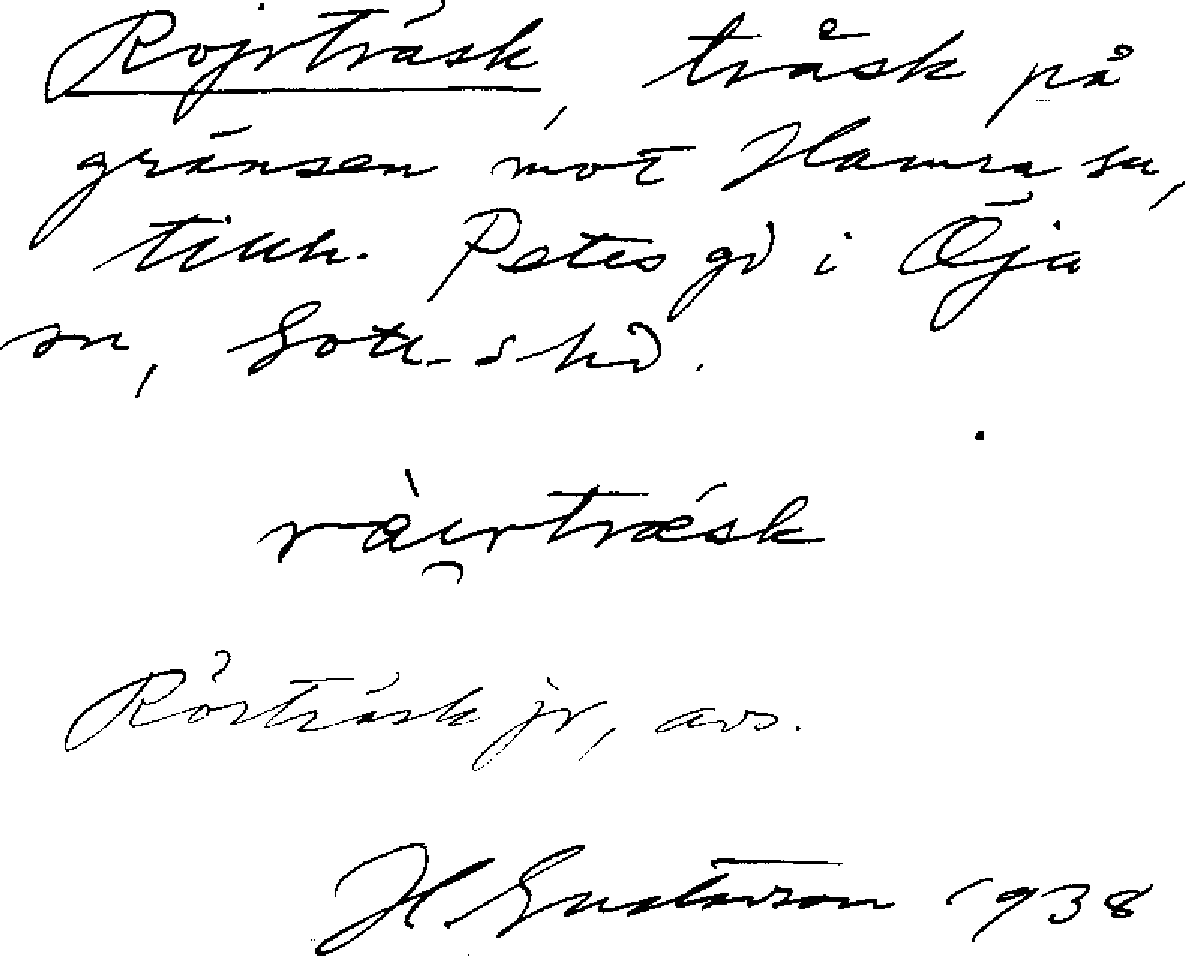 Rojrträsk, träsk på
gränsen mot Hamra sn,
tillh. Petes gd i Öja
sn, Gotl. s hd.
rài̯rtræsk
Rörträsk jr, avs.
H. Gustavson 1938